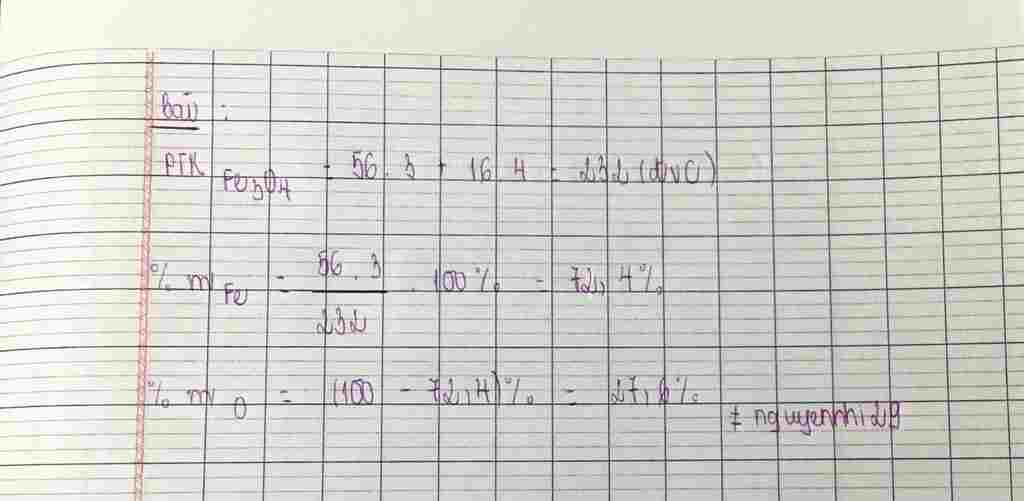 Bài :
PTK Fe3O4 = 56 . 3 + 16 . 4 = 232 (đvC)
% m Fe = 56 . 3 / 232 . 100 % = 72,4%
% m O = (100 - 72,4)% = 27,6%
# nguyennhi29